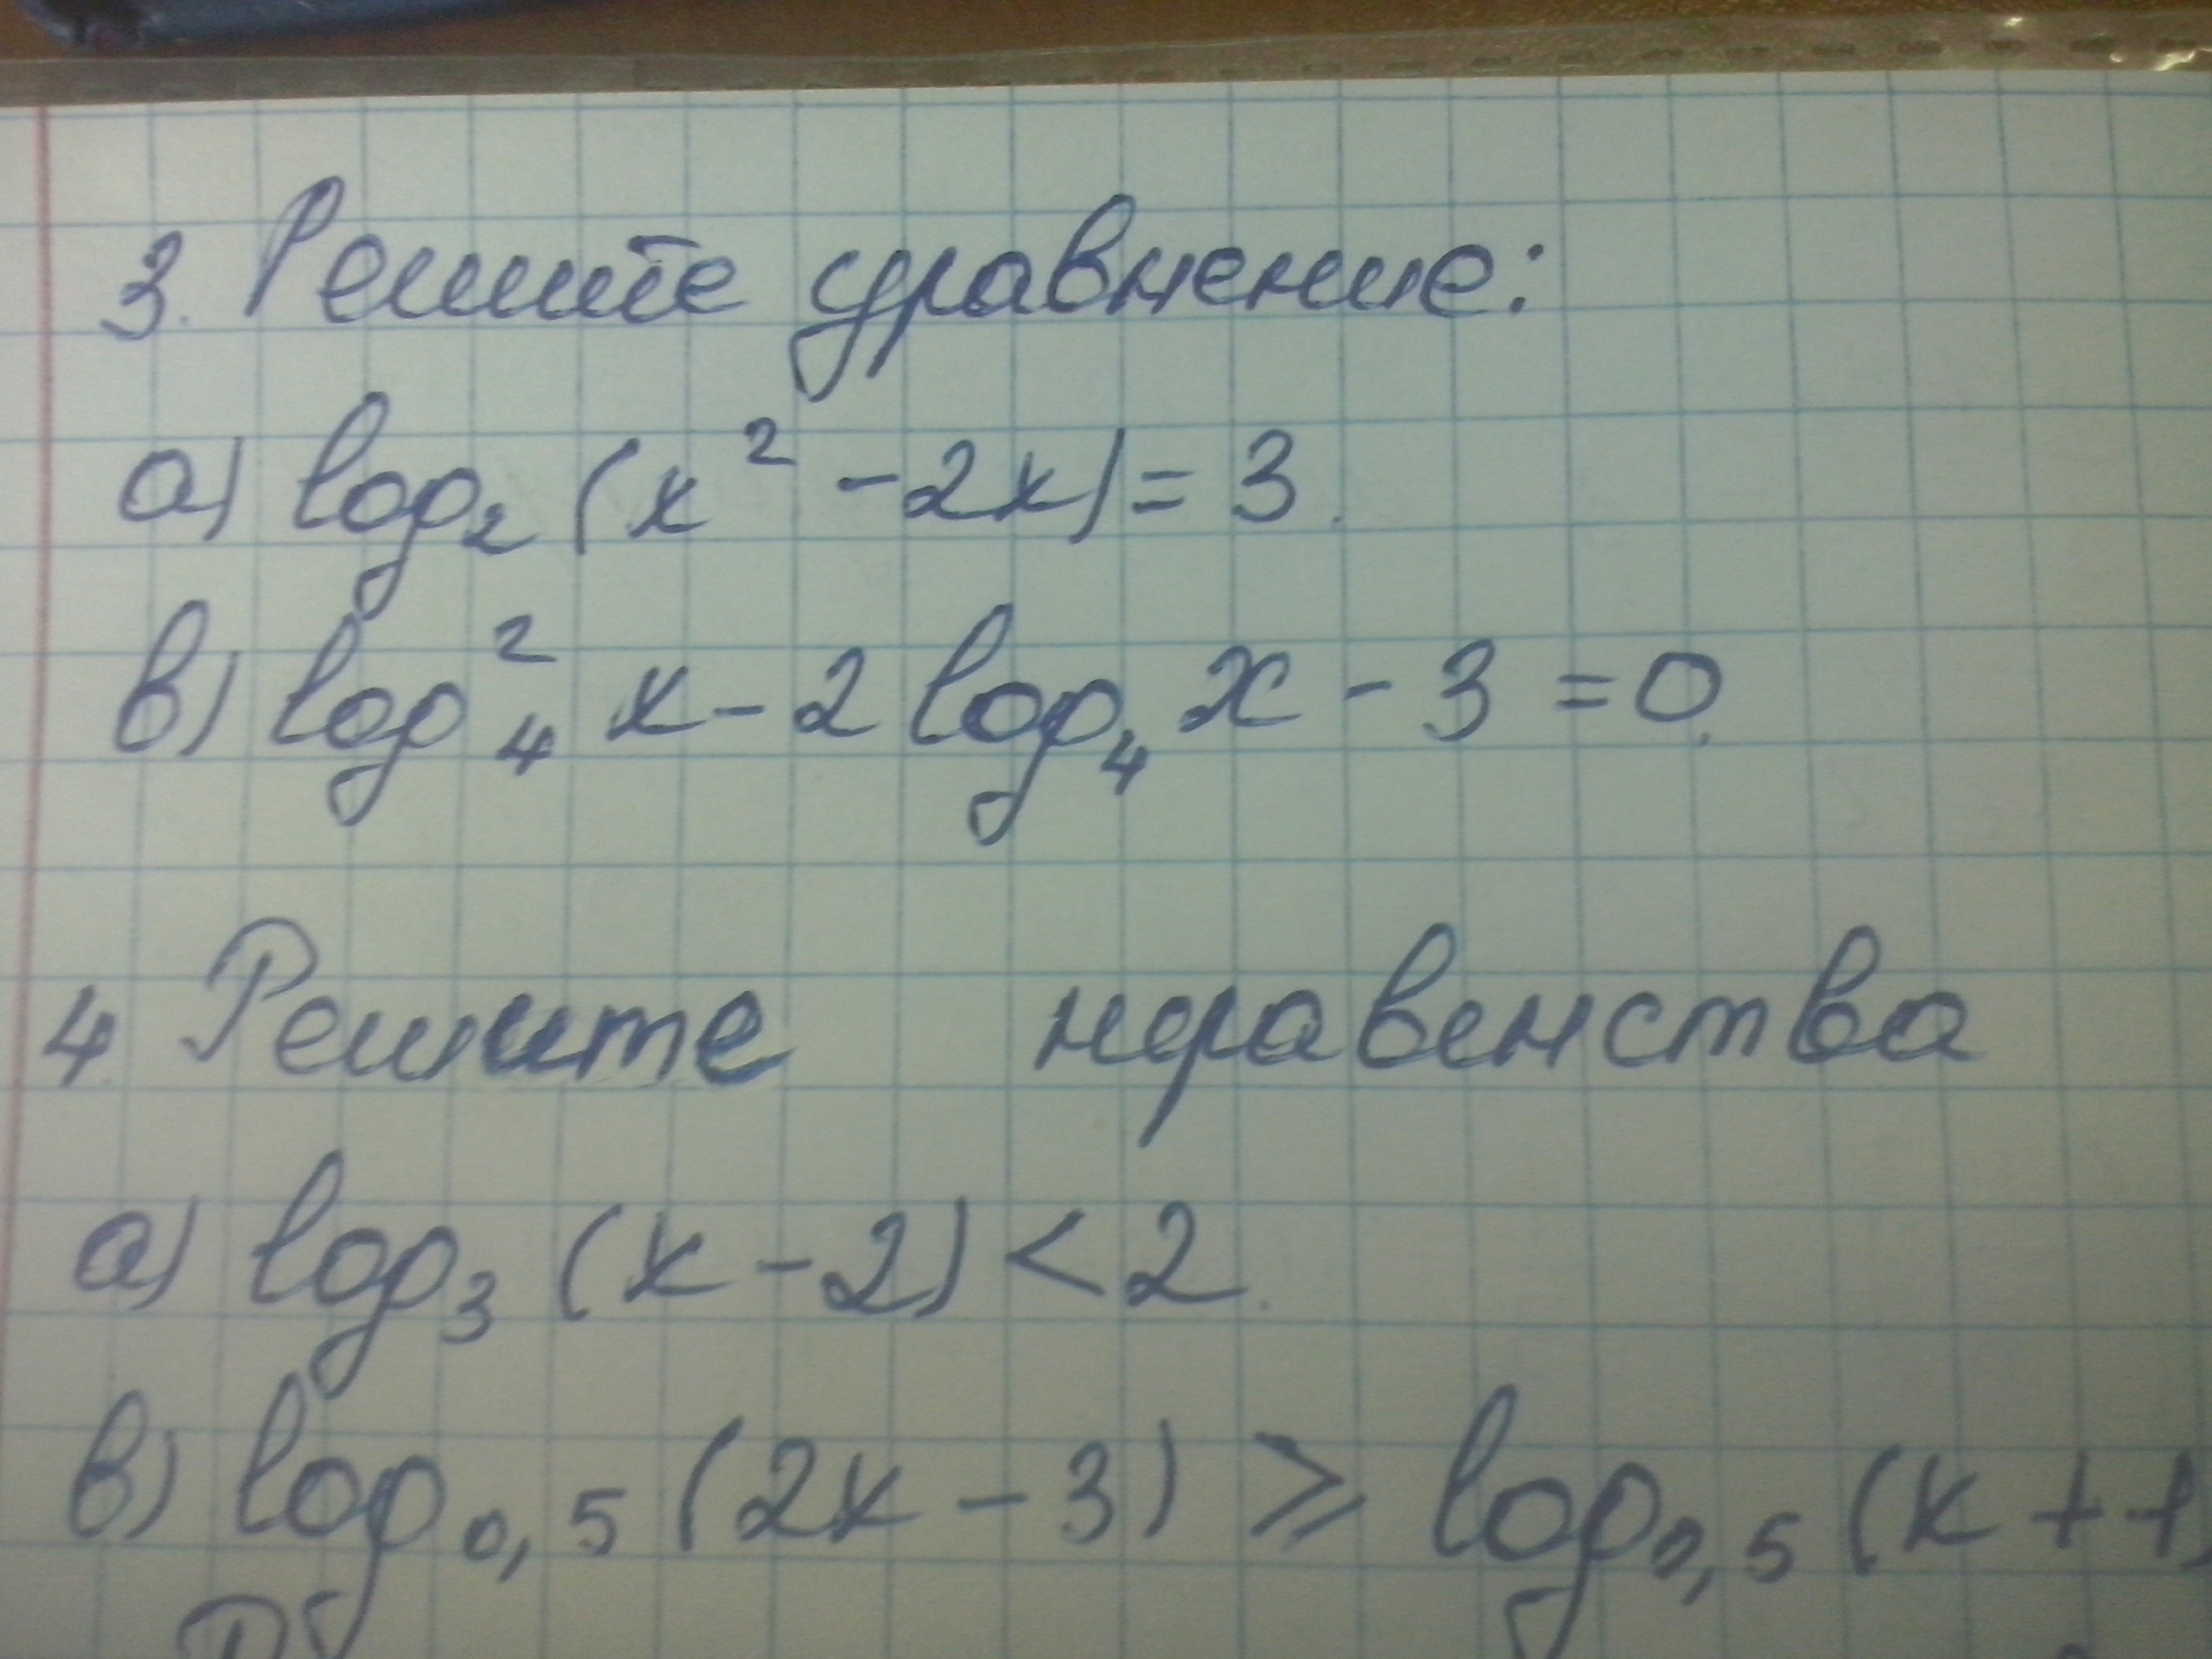 3. Решите уравнение:
а) log₂ (x² - 2x) = 3.
в) log₄² x - 2 log₄ x - 3 = 0.
4. Решите неравенства
а) log₃ (x - 2) < 2.
в) log₀,₅ (2x - 3) ⩾ log₀,₅ (x + 1)